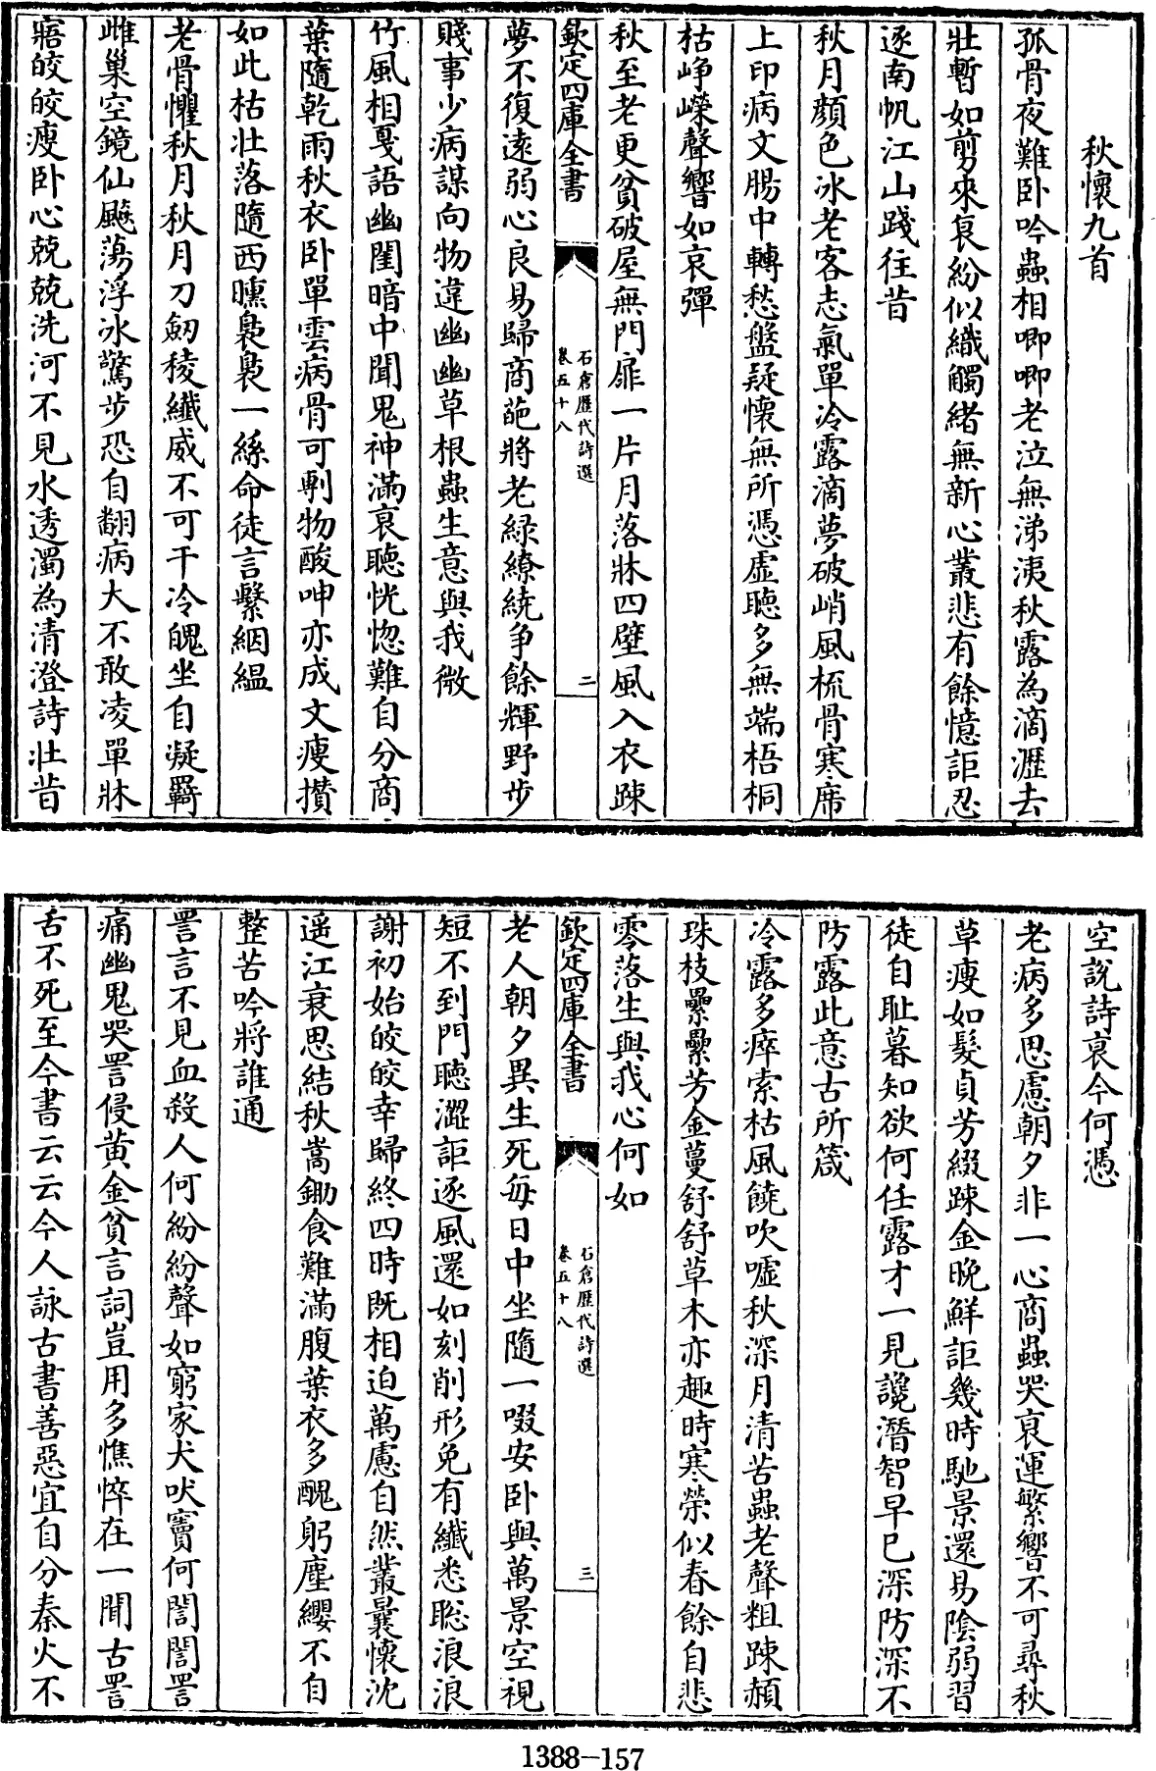 秋懷九首
孤骨夜難卧吟蟲相唧唧老泣無涕洟秋露為滴瀝去
壯暫如剪來衰紛似織觸緒無新心叢悲有餘憶詎忍
逐南帆江山踐往昔
秋月顏色冰老客志氣單冷露滴夢破峭風梳骨寒席
上印病文腸中轉愁盤疑懷無所憑虛聽多無端梧桐
枯崢嶸聲響如哀彈
秋至老更貧破屋無門扉一片月落牀四壁風入衣踈
欽定四庫全書
石倉歷代詩選
卷五十八
二
夢不復遠弱心良易歸商葩將老緑繚繞争餘輝野步
賤事少病謀向物違幽幽草根蟲生意與我微
竹風相戛語幽閨暗中聞鬼神滿衰聴恍惚難自分商
葉隨乾雨秋衣卧單雲病骨可剸物酸呻亦成文瘦攢
如此枯壯落隨西曛裊裊一綫命徒言繫絪緼
老骨懼秋月秋月刀劒稜纖威不可干冷魄坐自凝羇
雌巢空鏡仙飈蕩浮冰驚步恐自翻病大不敢凌單牀
寤皎皎瘦卧心兢兢洗河不見水透濁為清澄詩壯昔
空説詩衰今何憑
老病多思慮朝夕非一心商蟲哭衰運繁響不可尋秋
草瘦如髮貞芳綴踈金晚鮮詎幾時馳景還易陰弱習
徒自耻暮知欲何任露才一見讒潛智早已深防深不
防露此意古所箴
冷露多瘁索枯風饒吹嘘秋深月清苦蟲老聲粗踈頳
珠枝纍纍芳金蔓舒舒草木亦趣時寒榮似春餘自悲
零落生與我心何如
欽定四庫全書
石倉歷代詩選
卷五十八
三
老人朝夕異生死每日中坐隨一啜安卧與萬景空視
短不到門聴澀詎逐風還如刻削形免有纖悉聡浪浪
謝初始皎皎幸歸終四時既相迫萬慮自然叢曩懷沈
遥江衰思結秋嵩鋤食難滿腹葉衣多醜躬塵纓不自
整苦吟將誰通
詈言不見血殺人何紛紛聲如窮家犬吠竇何誾誾詈
痛幽鬼哭詈侵黄金貧言詞豈用多憔悴在一聞古詈
舌不死至今書云云今人詠古書善惡宜自分秦火不
1388-157